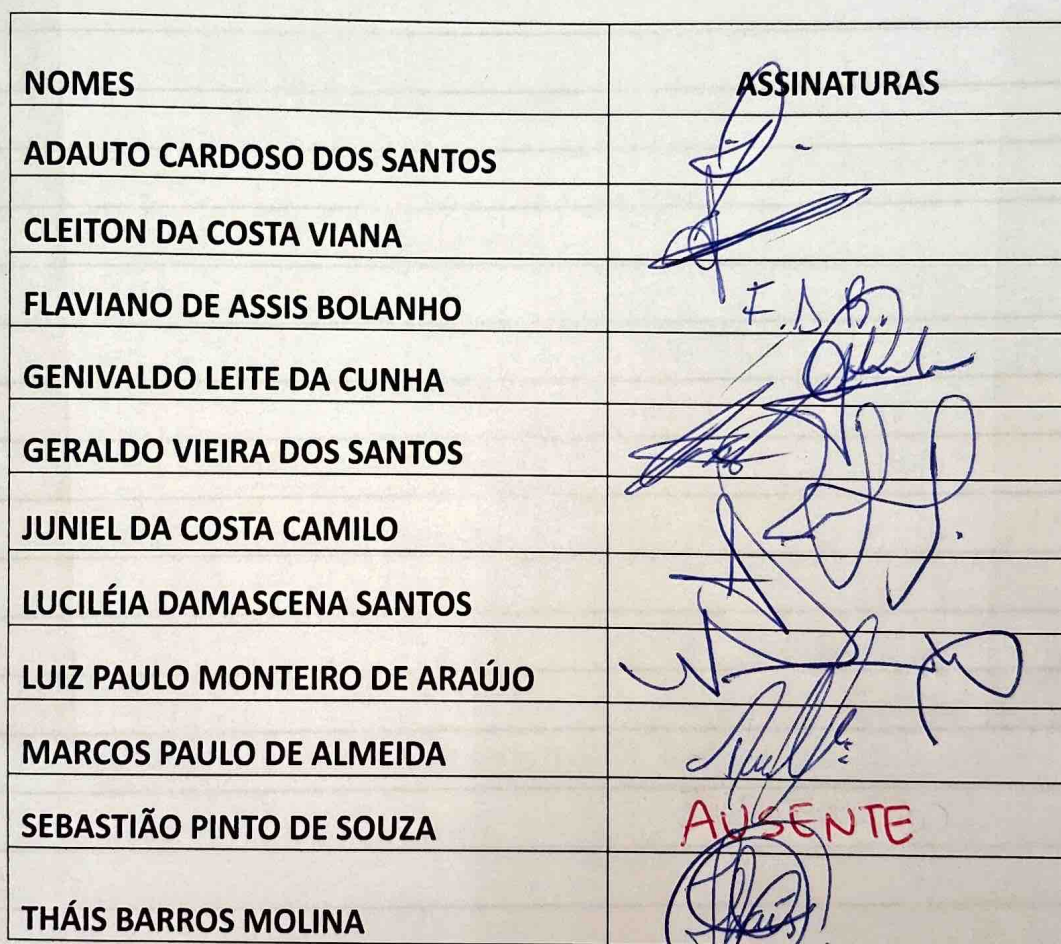 NOMES ASSINATURAS
ADAUTO CARDOSO DOS SANTOS
CLEITON DA COSTA VIANA
FLAVIANO DE ASSIS BOLANHO F.A.B.
GENIVALDO LEITE DA CUNHA
GERALDO VIEIRA DOS SANTOS
JUNIEL DA COSTA CAMILO
LUCILÉIA DAMASCENA SANTOS
LUIZ PAULO MONTEIRO DE ARAÚJO
MARCOS PAULO DE ALMEIDA
SEBASTIÃO PINTO DE SOUZA AUSENTE
THÁIS BARROS MOLINA